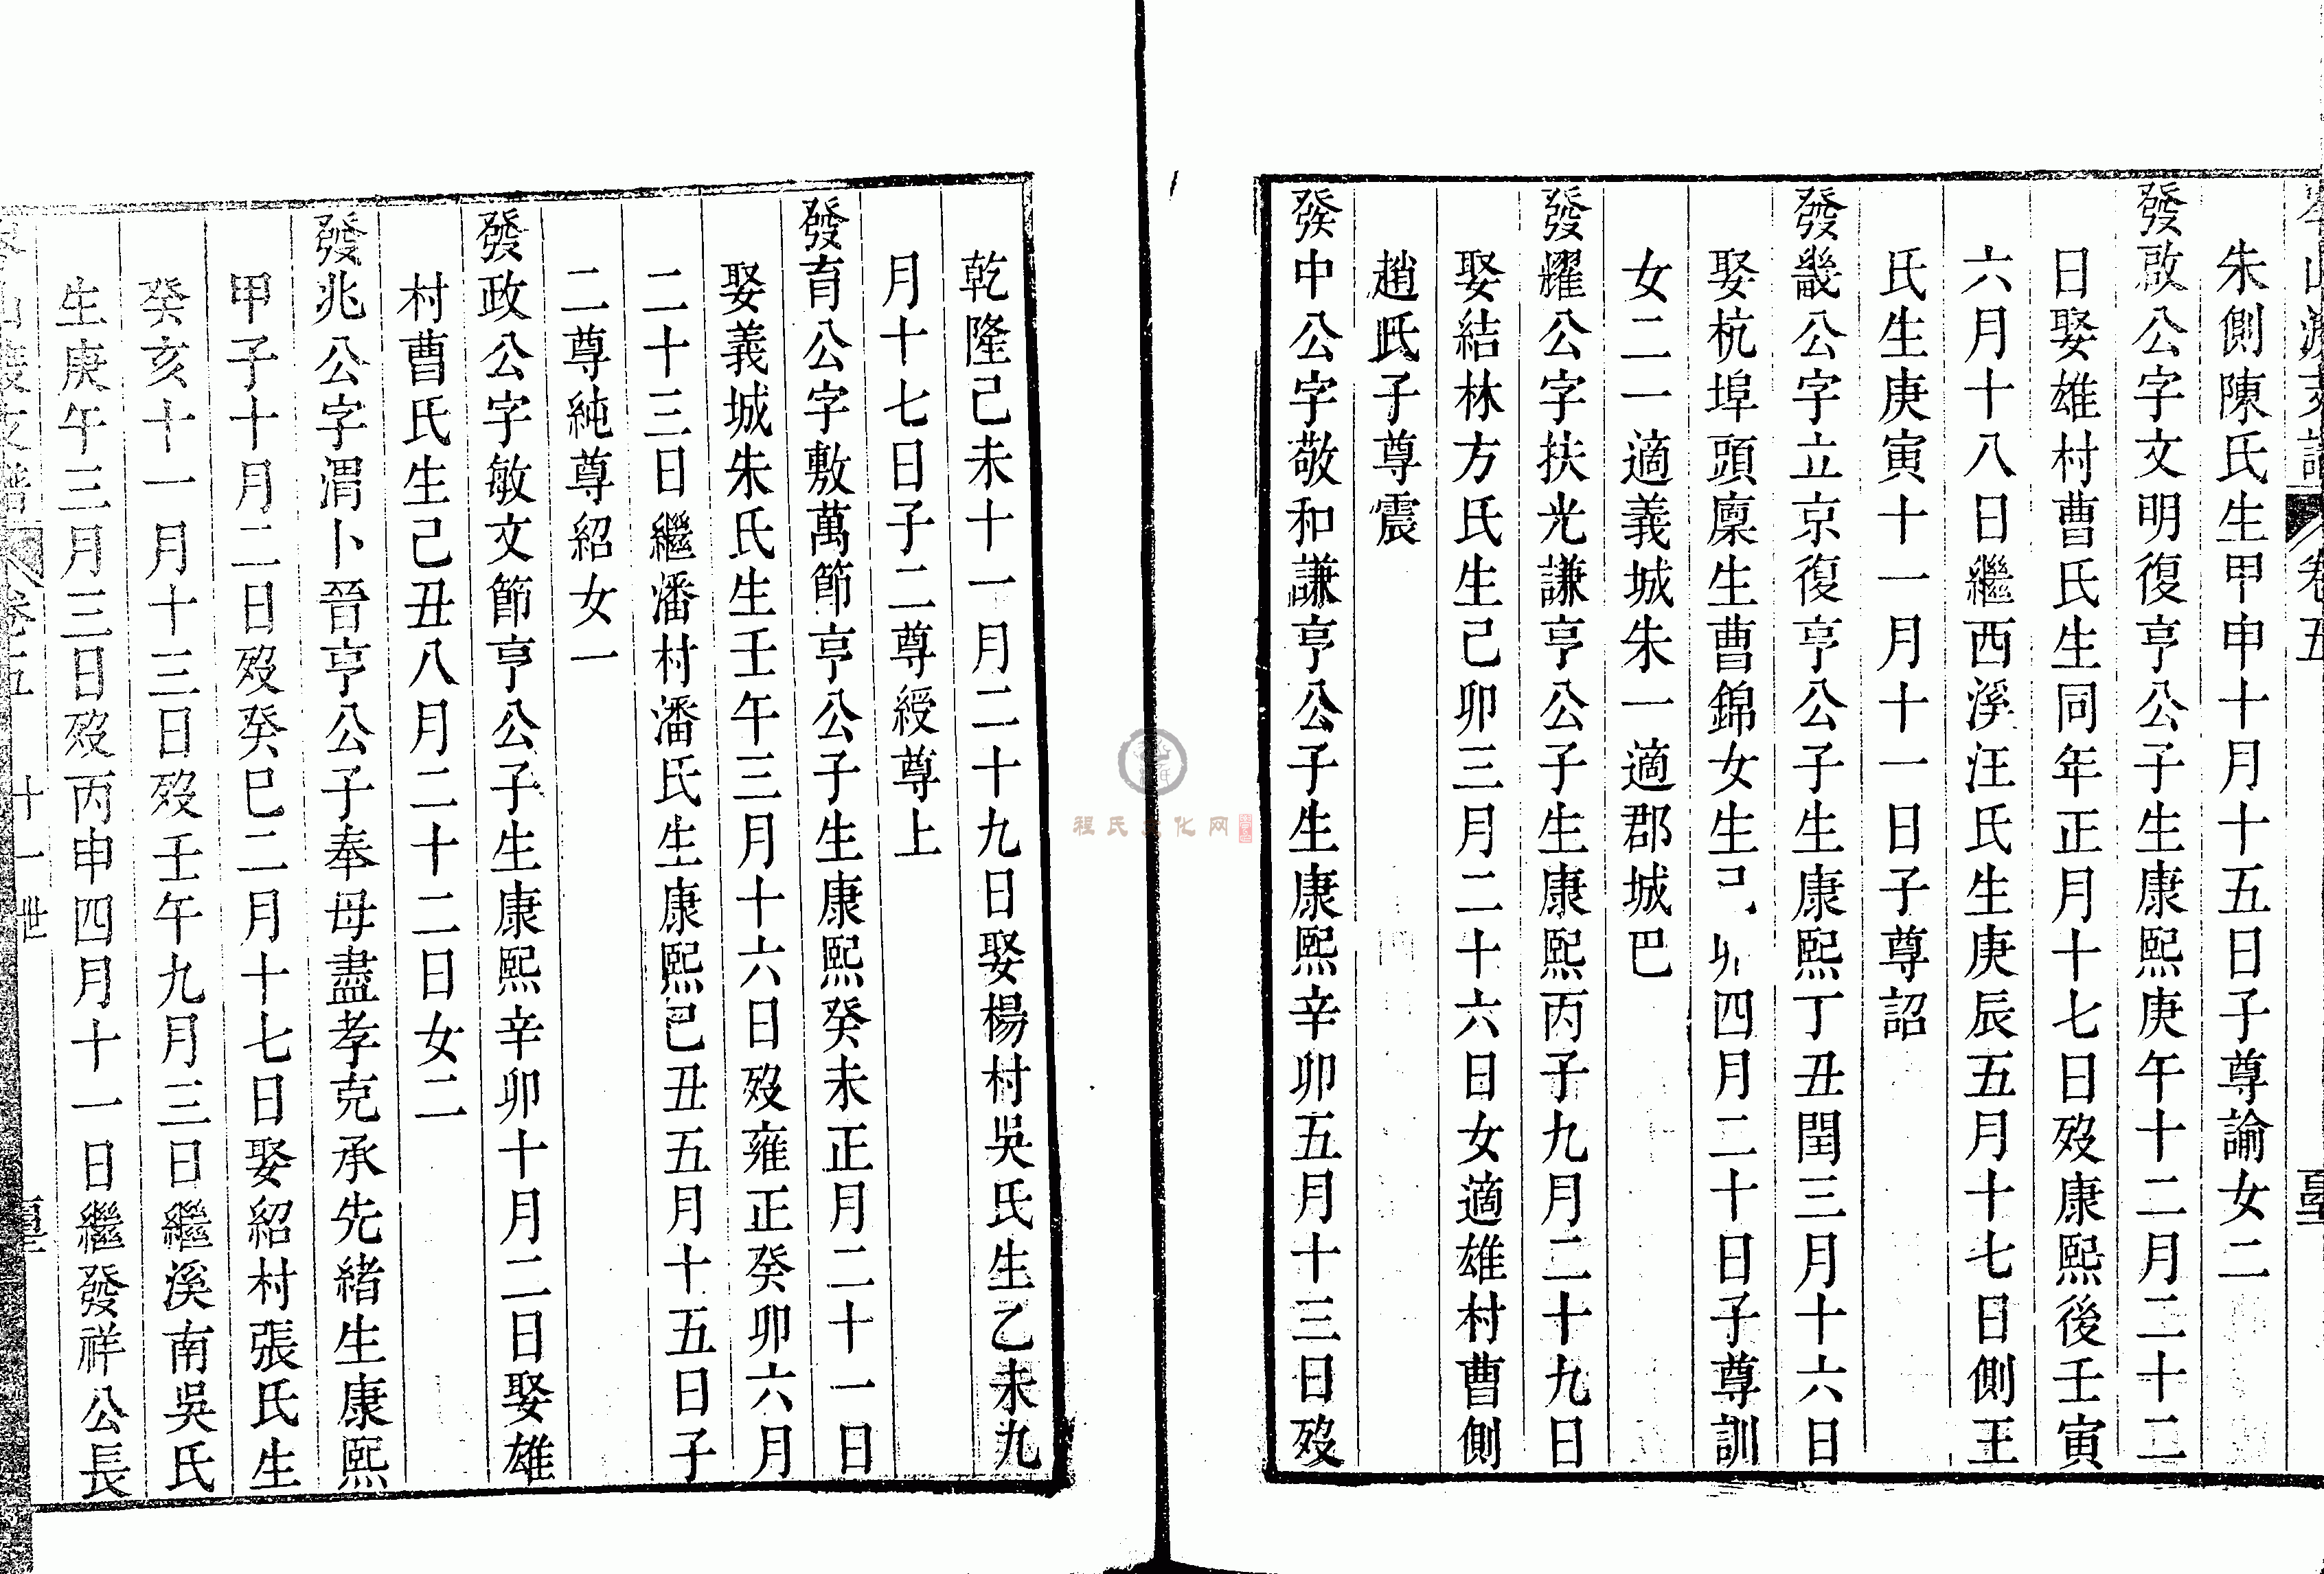 朱側陳氏生甲申十月十五日子尊論女二
發啟公字文明復亨公子生康熙庚午十二月二十二
日娶雄村曹氏生同年正月十七日歿康熙後壬寅
六月十八日繼西溪汪氏生庚辰五月十七日側王
氏生庚寅十一月十一日子尊詔
發畿公字立京復亨公子生康熙丁丑閏三月十六日
娶杭埠頭廩生曹錦女生己卯四月二十日子尊訓
女二一適義城朱一適郡城巴
發耀公字扶光謙亨公子生康熙丙子九月二十九日
娶結林方氏生己卯三月二十六日女適雄村曹側
趙氏子尊震
發中公字敬和謙亨公子生康熙辛卯五月十三日歿
乾隆己未十一月二十九日娶楊村吳氏生乙未九
月十七日子二尊綬尊上
發育公字敷萬節亨公子生康熙癸未正月二十一日
娶義城朱氏生壬午三月十六日歿雍正癸卯六月
二十三日繼潘村潘氏生康熙己丑五月十五日子
二尊純尊紹女一
發政公字敏文節亨公子生康熙辛卯十月二日娶雄
村曹氏生己丑八月二十二日女二
發兆公字渭卜晉亨公子奉母盡孝克承先緒生康熙
甲子十月二日歿癸巳二月十七日娶紹村張氏生
癸亥十一月十三日歿壬午九月三日繼溪南吳氏
生庚午三月三日歿丙申四月十一日繼發祥公長
卷五 十一世
程氏文化网